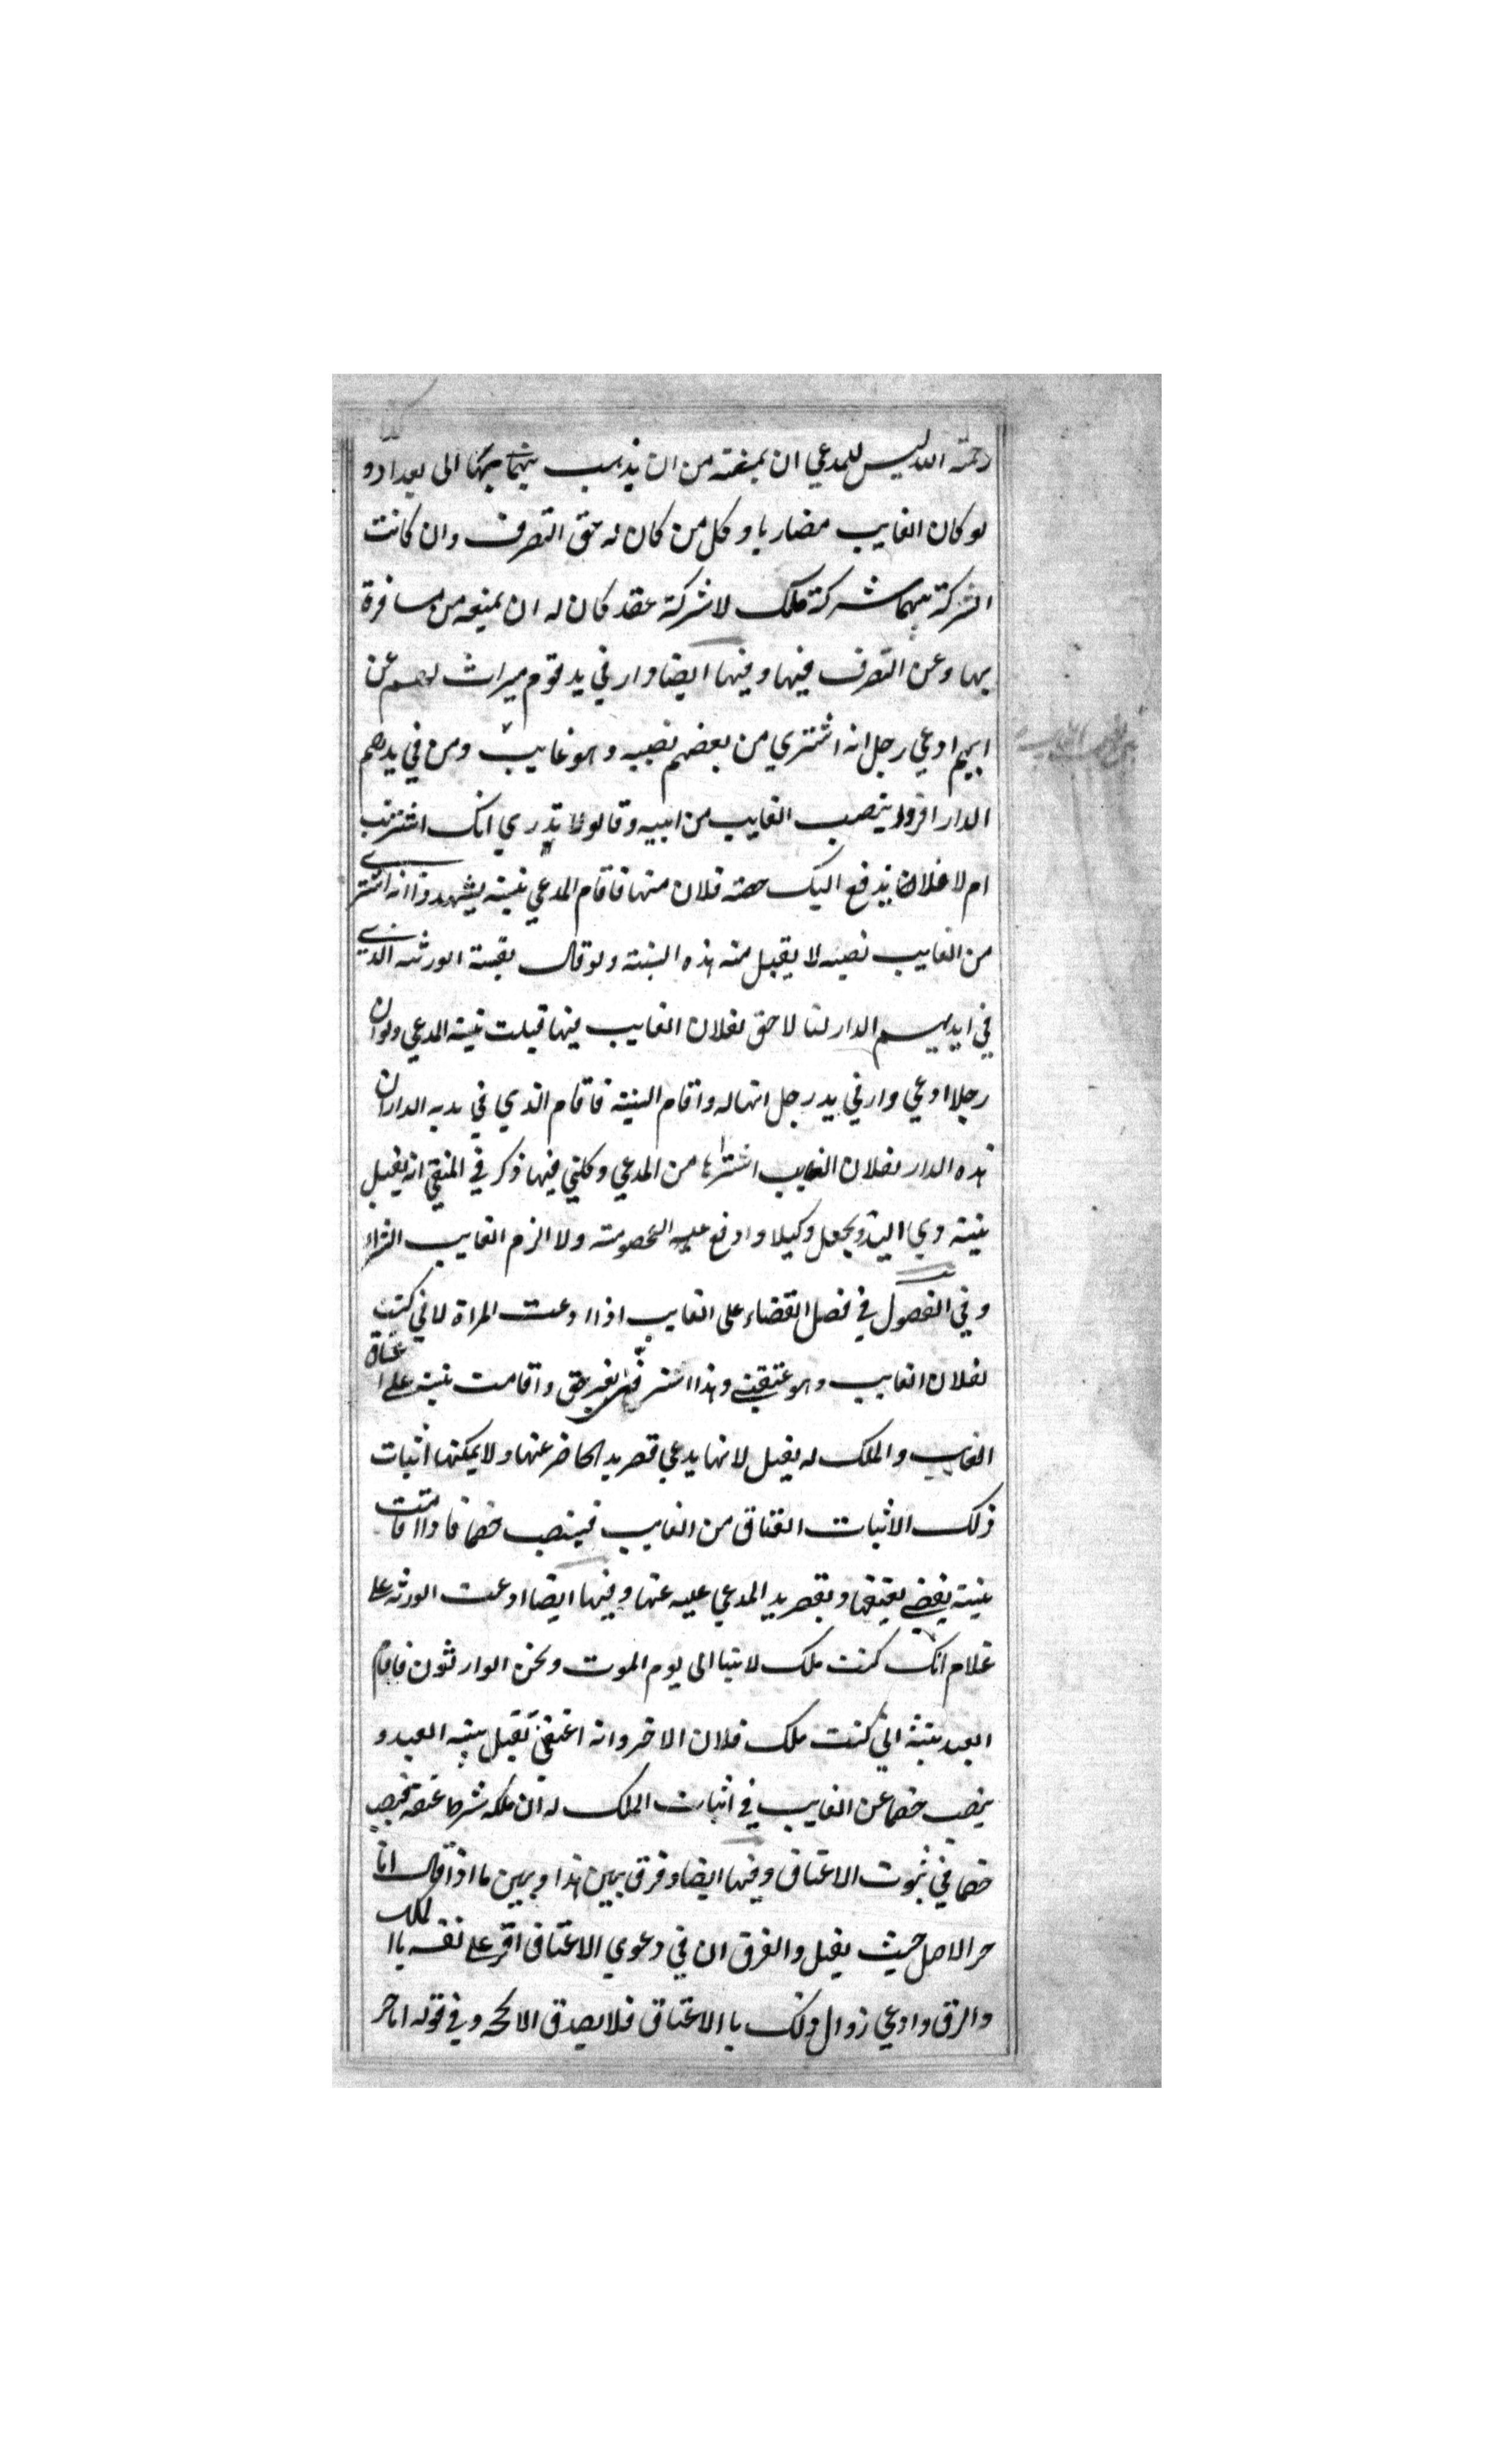 رحمة الله ليس للمدعي ان يمنعه من ان يذهب بها الى بغداد و
لو كان الغايب مضاربا وكل من كان له حق التصرف وان كانت
الشركة بينهما شركة ملك لا شركة عقد كان له ان يمنعه من مسافرة
بها وعن التصرف فيها وفيها ايضا دار في يد قوم ميراث لهم عن
ابيهم ادعي رجل انه اشتري من بعضهم نصيبه وهو غايب ومن في يدهم
الدار اقروا بنصب الغايب من ابيه وقالو لا ندري انك اشتريت
ام لا فلان يدفع اليك حصه فلان منها فاقام المدعي بينته يشهدوا انه اشتري
من الغايب نصيبه لا يقبل منه هذه البينته ولو قال بقية الورثه الذي
في ايديهم الدار لنا لا حق لفلان الغايب فيها قبلت بينته المدعي ولو ان
رجلا ادعي دار في يد رجل انها له واقام البينته فاقام الذي في يديه الدار ان
هذه الدار لفلان الغايب اشتراها من المدعي وكلني فيها ذكر في المنتقي انه يقبل
بينته وي اليد ويجعل وكيلا وادفع عليه الخصومته ولا الزم الغايب الشراء
وفي الفصول في فصل القضاء على الغايب اذا ادعت المراة لاني كنت
لفلان الغايب وهو عتقني وهذا استرقني بغير حق واقامت بينته علي اعتاق
الغايب والملك له يقبل لانها يدعي قصر يد الحاضر عنها ولا يمكنها اثبات
ذلك الا اثبات العتاق من الغايب فينصب خصما فاذا اقامت
بينته يقضي بعتقها وبقصر يد المدعي عليه عنها وفيها ايضا ادعت الورثه علي
غلام انك كنت ملك لابينا الى يوم الموت ونحن الوارثون فاقام
العبد بينته اني كنت ملك فلان الاخر وانه اعتقني تقبل بينه العبد و
ينصب خصما عن الغايب في اثبات الملك له ان ملكه شرط عتقه فينصب
خصما في ثبوت الاعتاق وفيها ايضا وفرق بين هذا وبين ما اذا قال انا
حر الاصل حيث يقبل والفرق ان في دعوي الاعتاق اقر علي نفسه باالملك
والرق وادعي زوال ذلك باالاعتاق فلا يصدق الا بحجه وفي قوله انا حر